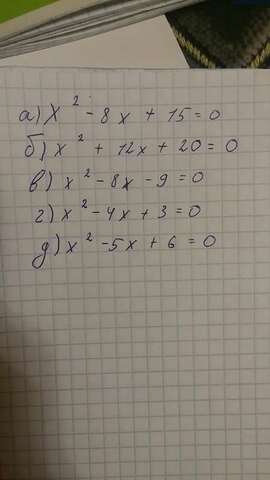 а) x² - 8x + 15 = 0
б) x² + 12x + 20 = 0
в) x² - 8x - 9 = 0
г) x² - 4x + 3 = 0
д) x² - 5x + 6 = 0